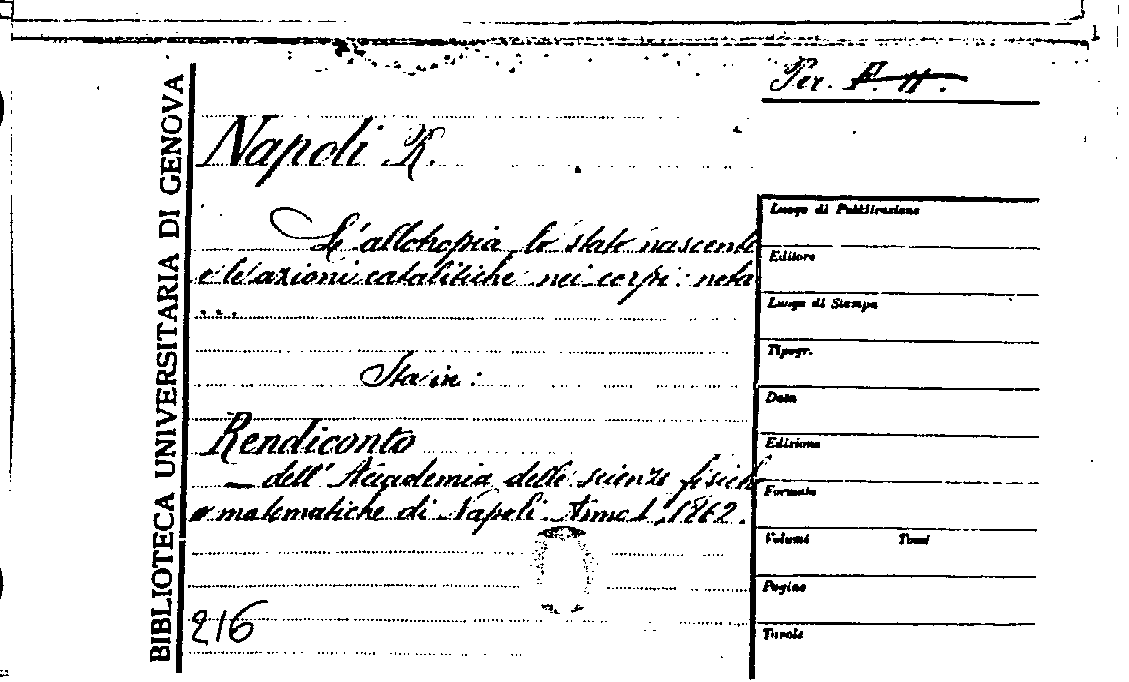 Per. F. H.
BIBLIOTECA UNIVERSITARIA DI GENOVA
Napoli R.
L'allotropia lo stato nascente
e le azioni catalitiche nei corpi: nota
...
Sta in:
Rendiconto
— dell'Accademia delle scienze fisiche
e matematiche di Napoli. Anno 1, 1862.
216
Luogo di Pubblicazione
Editore
Luogo di Stampa
Tipogr.
Data
Edizione
Formato
Volumi Tomi
Pagine
Tavole